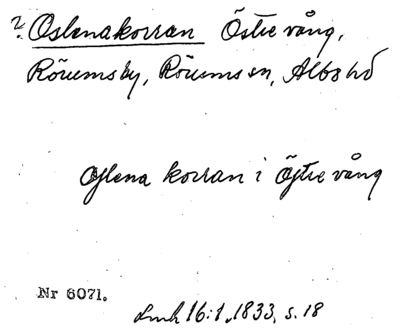 ? Oslenakorran Östre vång,
Rörums by, Rörums sn, Albo hd
Oslena korran i Östre vång
Nr 6071.
Lmh 16:1, 1833, s. 18